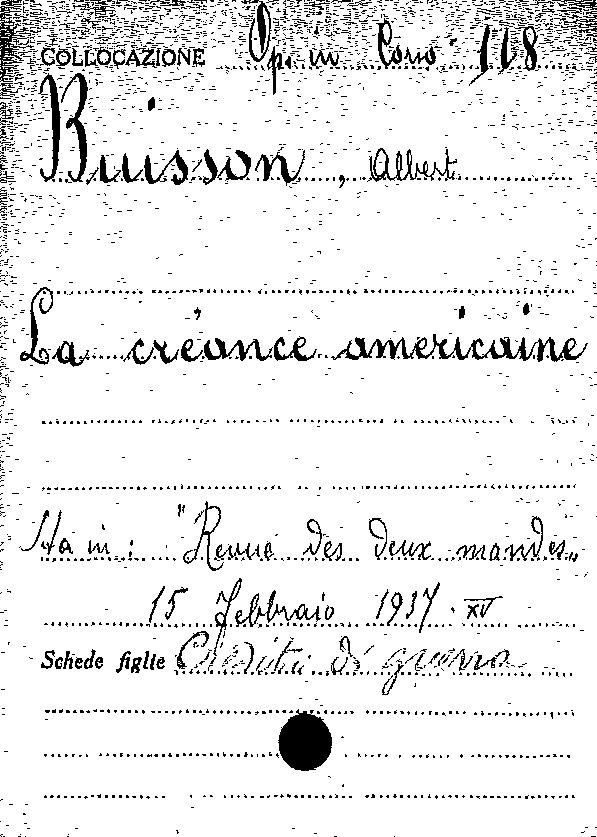 COLLOCAZIONE Op. in Cons 118
Buisson, Albert
La créance américaine
Sta in: "Revue des deux mondes"
15 febbraio 1937. XV
Schede figlie Crediti di guerra